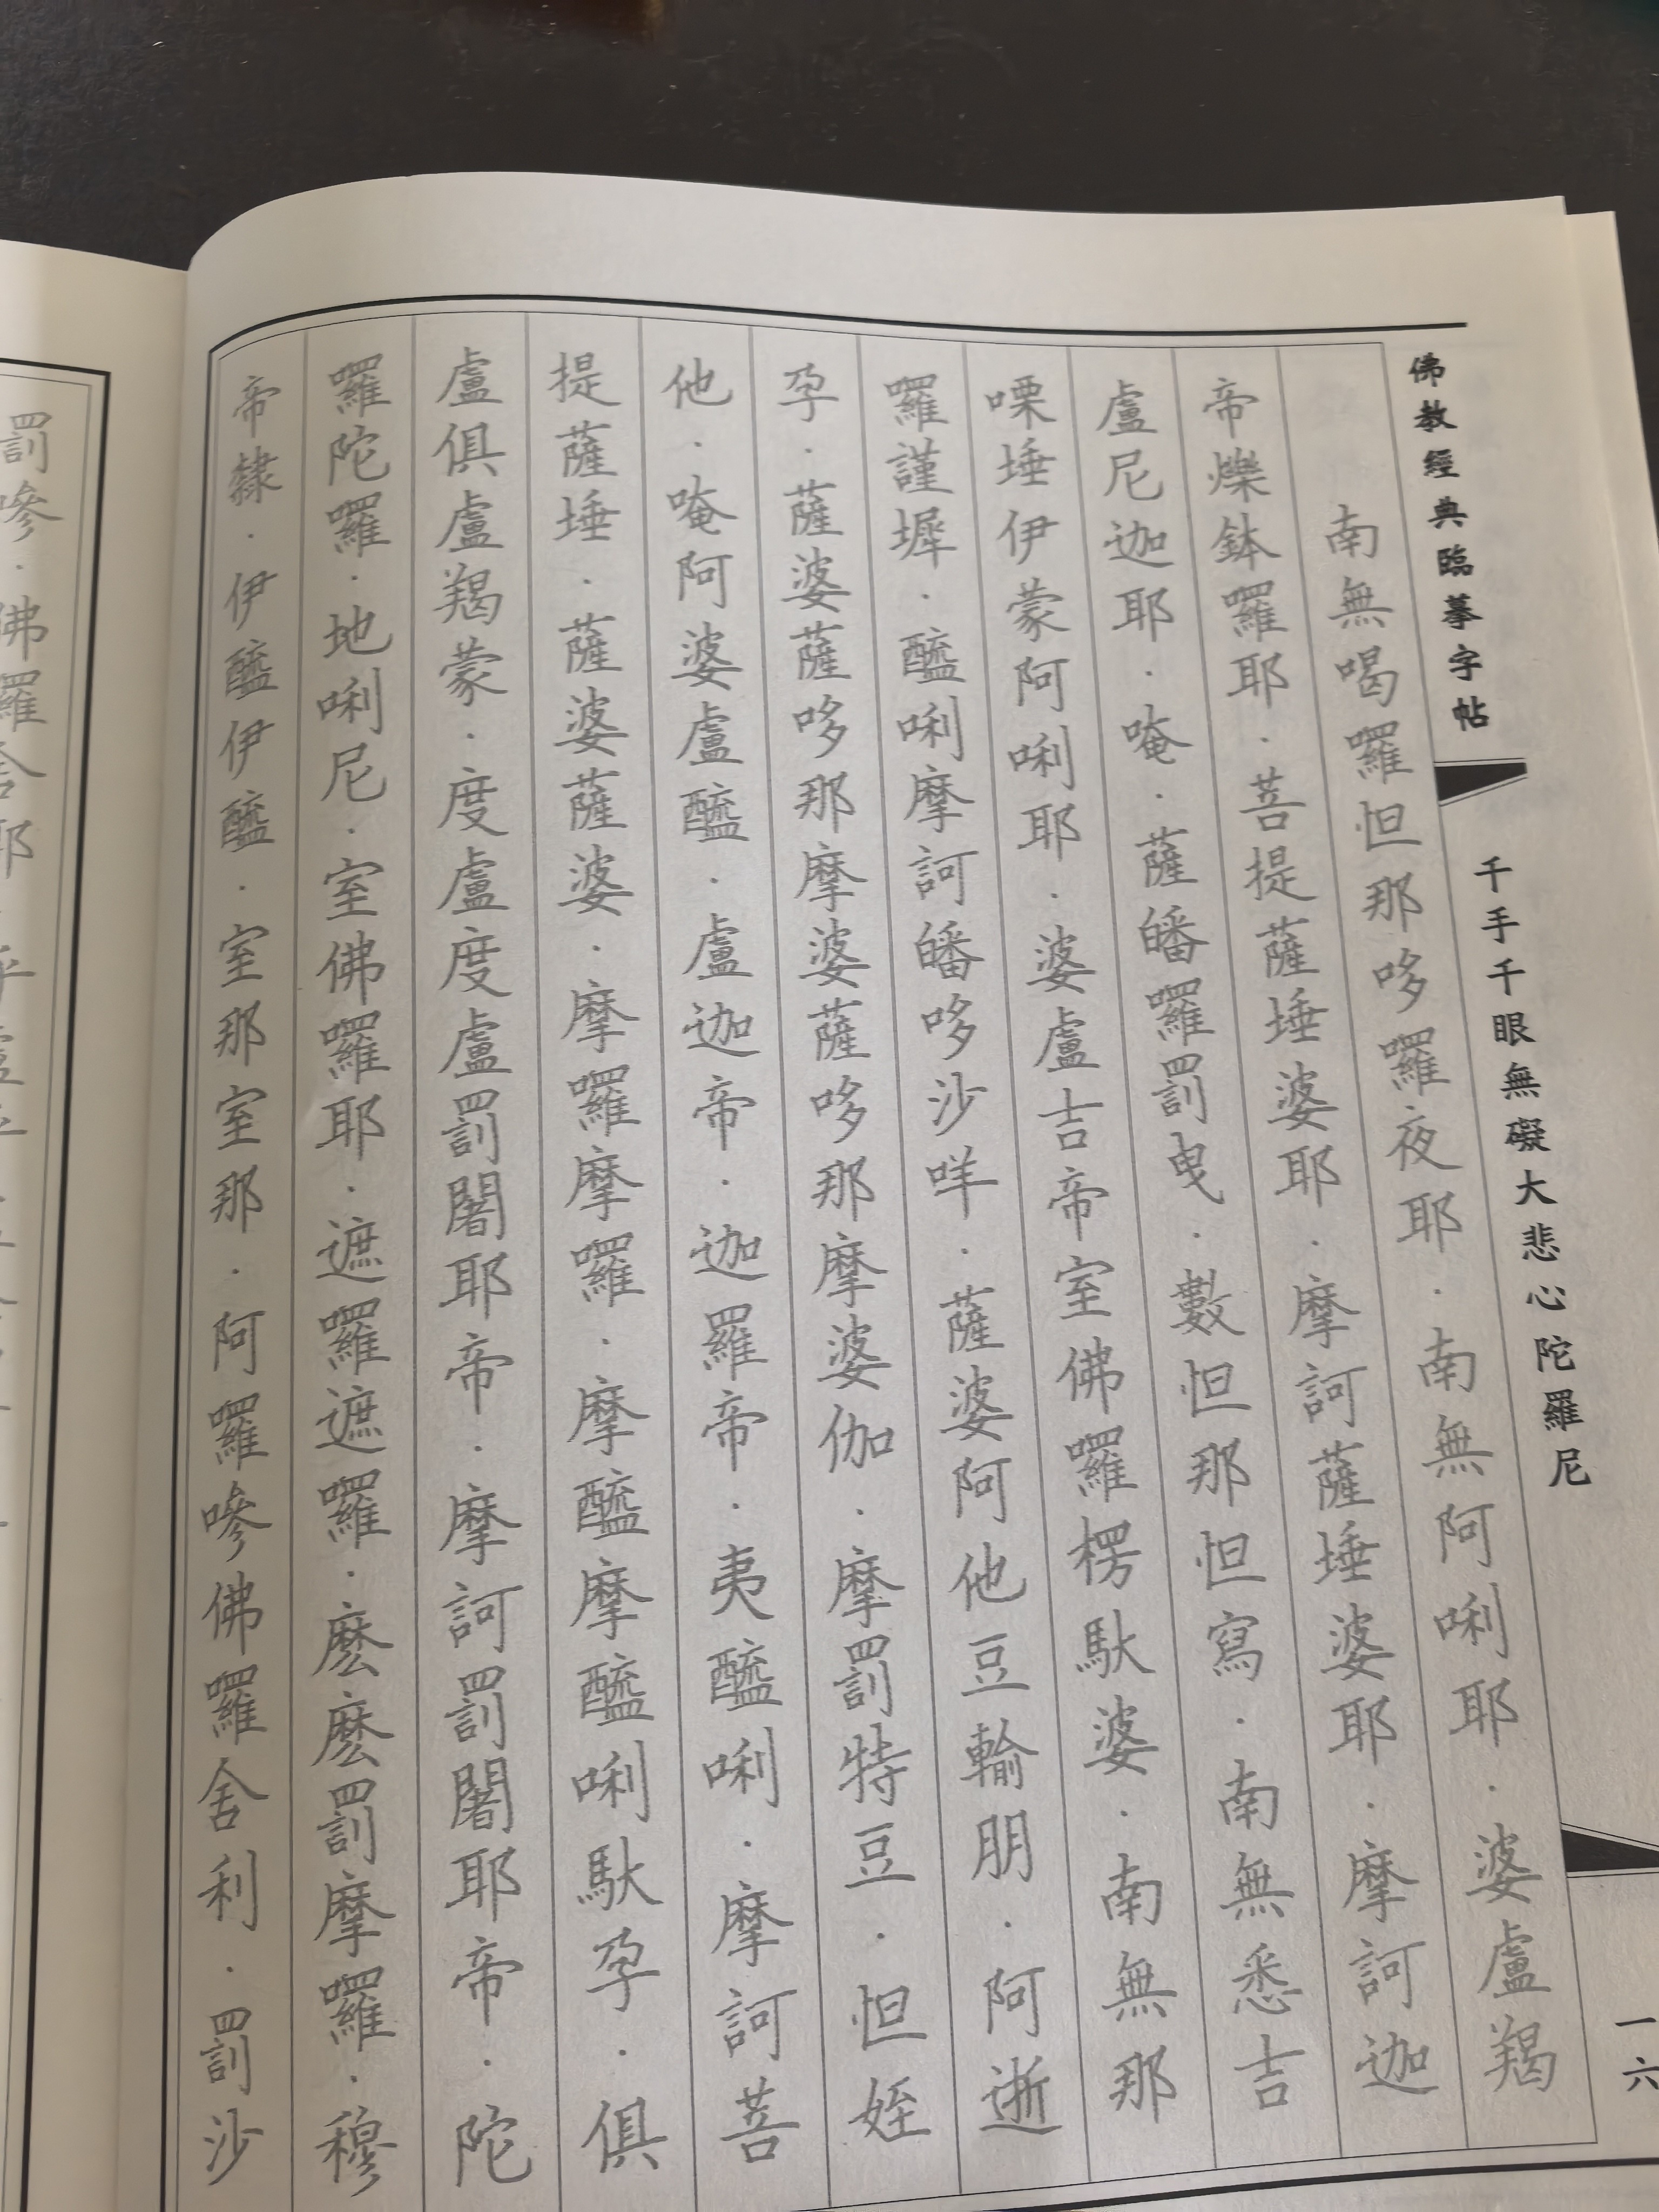 佛教經典臨摹字帖
千手千眼無礙大悲心陀羅尼
一六
南無喝囉怛那哆囉夜耶．南無阿唎耶．婆盧羯
帝爍鉢囉耶．菩提薩埵婆耶．摩訶薩埵婆耶．摩訶迦
盧尼迦耶．唵．薩皤囉罰曳．數怛那怛寫．南無悉吉
㗚埵伊蒙阿唎耶．婆盧吉帝室佛囉楞馱婆．南無那
囉謹墀．醯唎摩訶皤哆沙咩．薩婆阿他豆輸朋．阿逝
孕．薩婆薩哆那摩婆薩哆那摩婆伽．摩罰特豆．怛姪
他．唵阿婆盧醯．盧迦帝．迦羅帝．夷醯唎．摩訶菩
提薩埵．薩婆薩婆．摩囉摩囉．摩醯摩醯唎馱孕．俱
盧俱盧羯蒙．度盧度盧罰闍耶帝．摩訶罰闍耶帝．陀
羅陀羅．地唎尼．室佛囉耶．遮囉遮囉．麽麽罰摩囉．穆
帝隸．伊醯伊醯．室那室那．阿囉嘇佛囉舍利．罰沙
罰嘇．佛羅舍耶